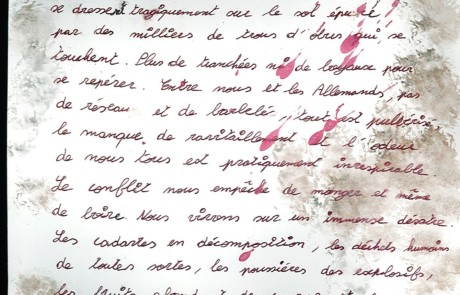 se dressent tragiquement sur le sol épuisé
par des milliers de trous d'obus qui se
touchent. Plus de tranchées ni de boyaux pour
se repérer. Entre nous et les Allemands, pas
de réseau et de barbelé, tout est pulvérisé
le manque de ravitaillement et l'odeur
de nous tous est pratiquement irrespirable
Le conflit nous empêche de manger et même
de boire Nous vivons sur un immense désastre.
Les cadavres en décomposition, les déchets humains
de toutes sortes, les poussières des explosifs,